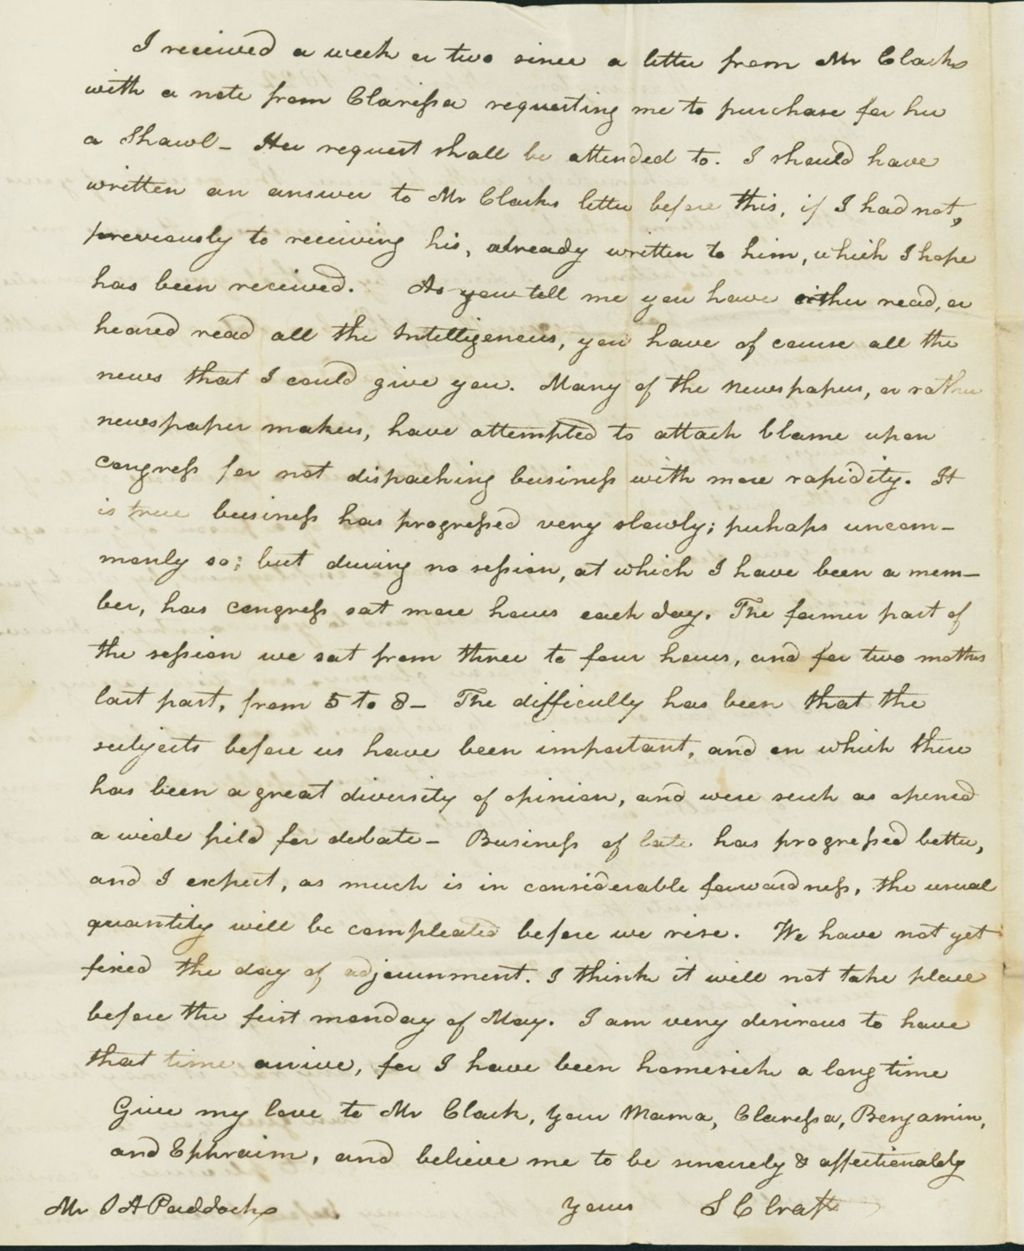 I received a week or two since a letter from Mr Clarks
with a note from Clarissa requesting me to purchase for her
a Shawl - Her request shall be attended to. I should have
written an answer to Mr Clarks letter before this, if I had not,
previously to receiving his, already written to him, which I hope
has been received. As you tell me you have either read, or
heared read all the Intelligencers, you have of course all the
news that I could give you. Many of the newspapers, or rather
newspaper makers, have attempted to attach blame upon
congress for not dispaching business with more rapidity. It
is true business has progressed very slowly; perhaps uncom-
monly so; but during no session, at which I have been a mem-
ber, has congress sat more hours each day. The former part of
the session we sat from three to four hours, and for two moths
last part, from 5 to 8 - The difficully has been that the
subjects before us have been important, and on which there
has been a great diversity of opinion, and were such as opened
a wide field for debate - Business of late has progressed better,
and I expect, as much is in considerable forwardness, the usual
quantity will be compleated before we rise. We have not yet
fixed the day of adjournment. I think it will not take place
before the first monday of May. I am very desirous to have
that time arrive, for I have been homesick a long time
Give my love to Mr Clark, your Mama, Claressa, Benjamin,
and Ephraim, and believe me to be sincerely & affectionably
Mr J A Paddocks yours S C Crafts